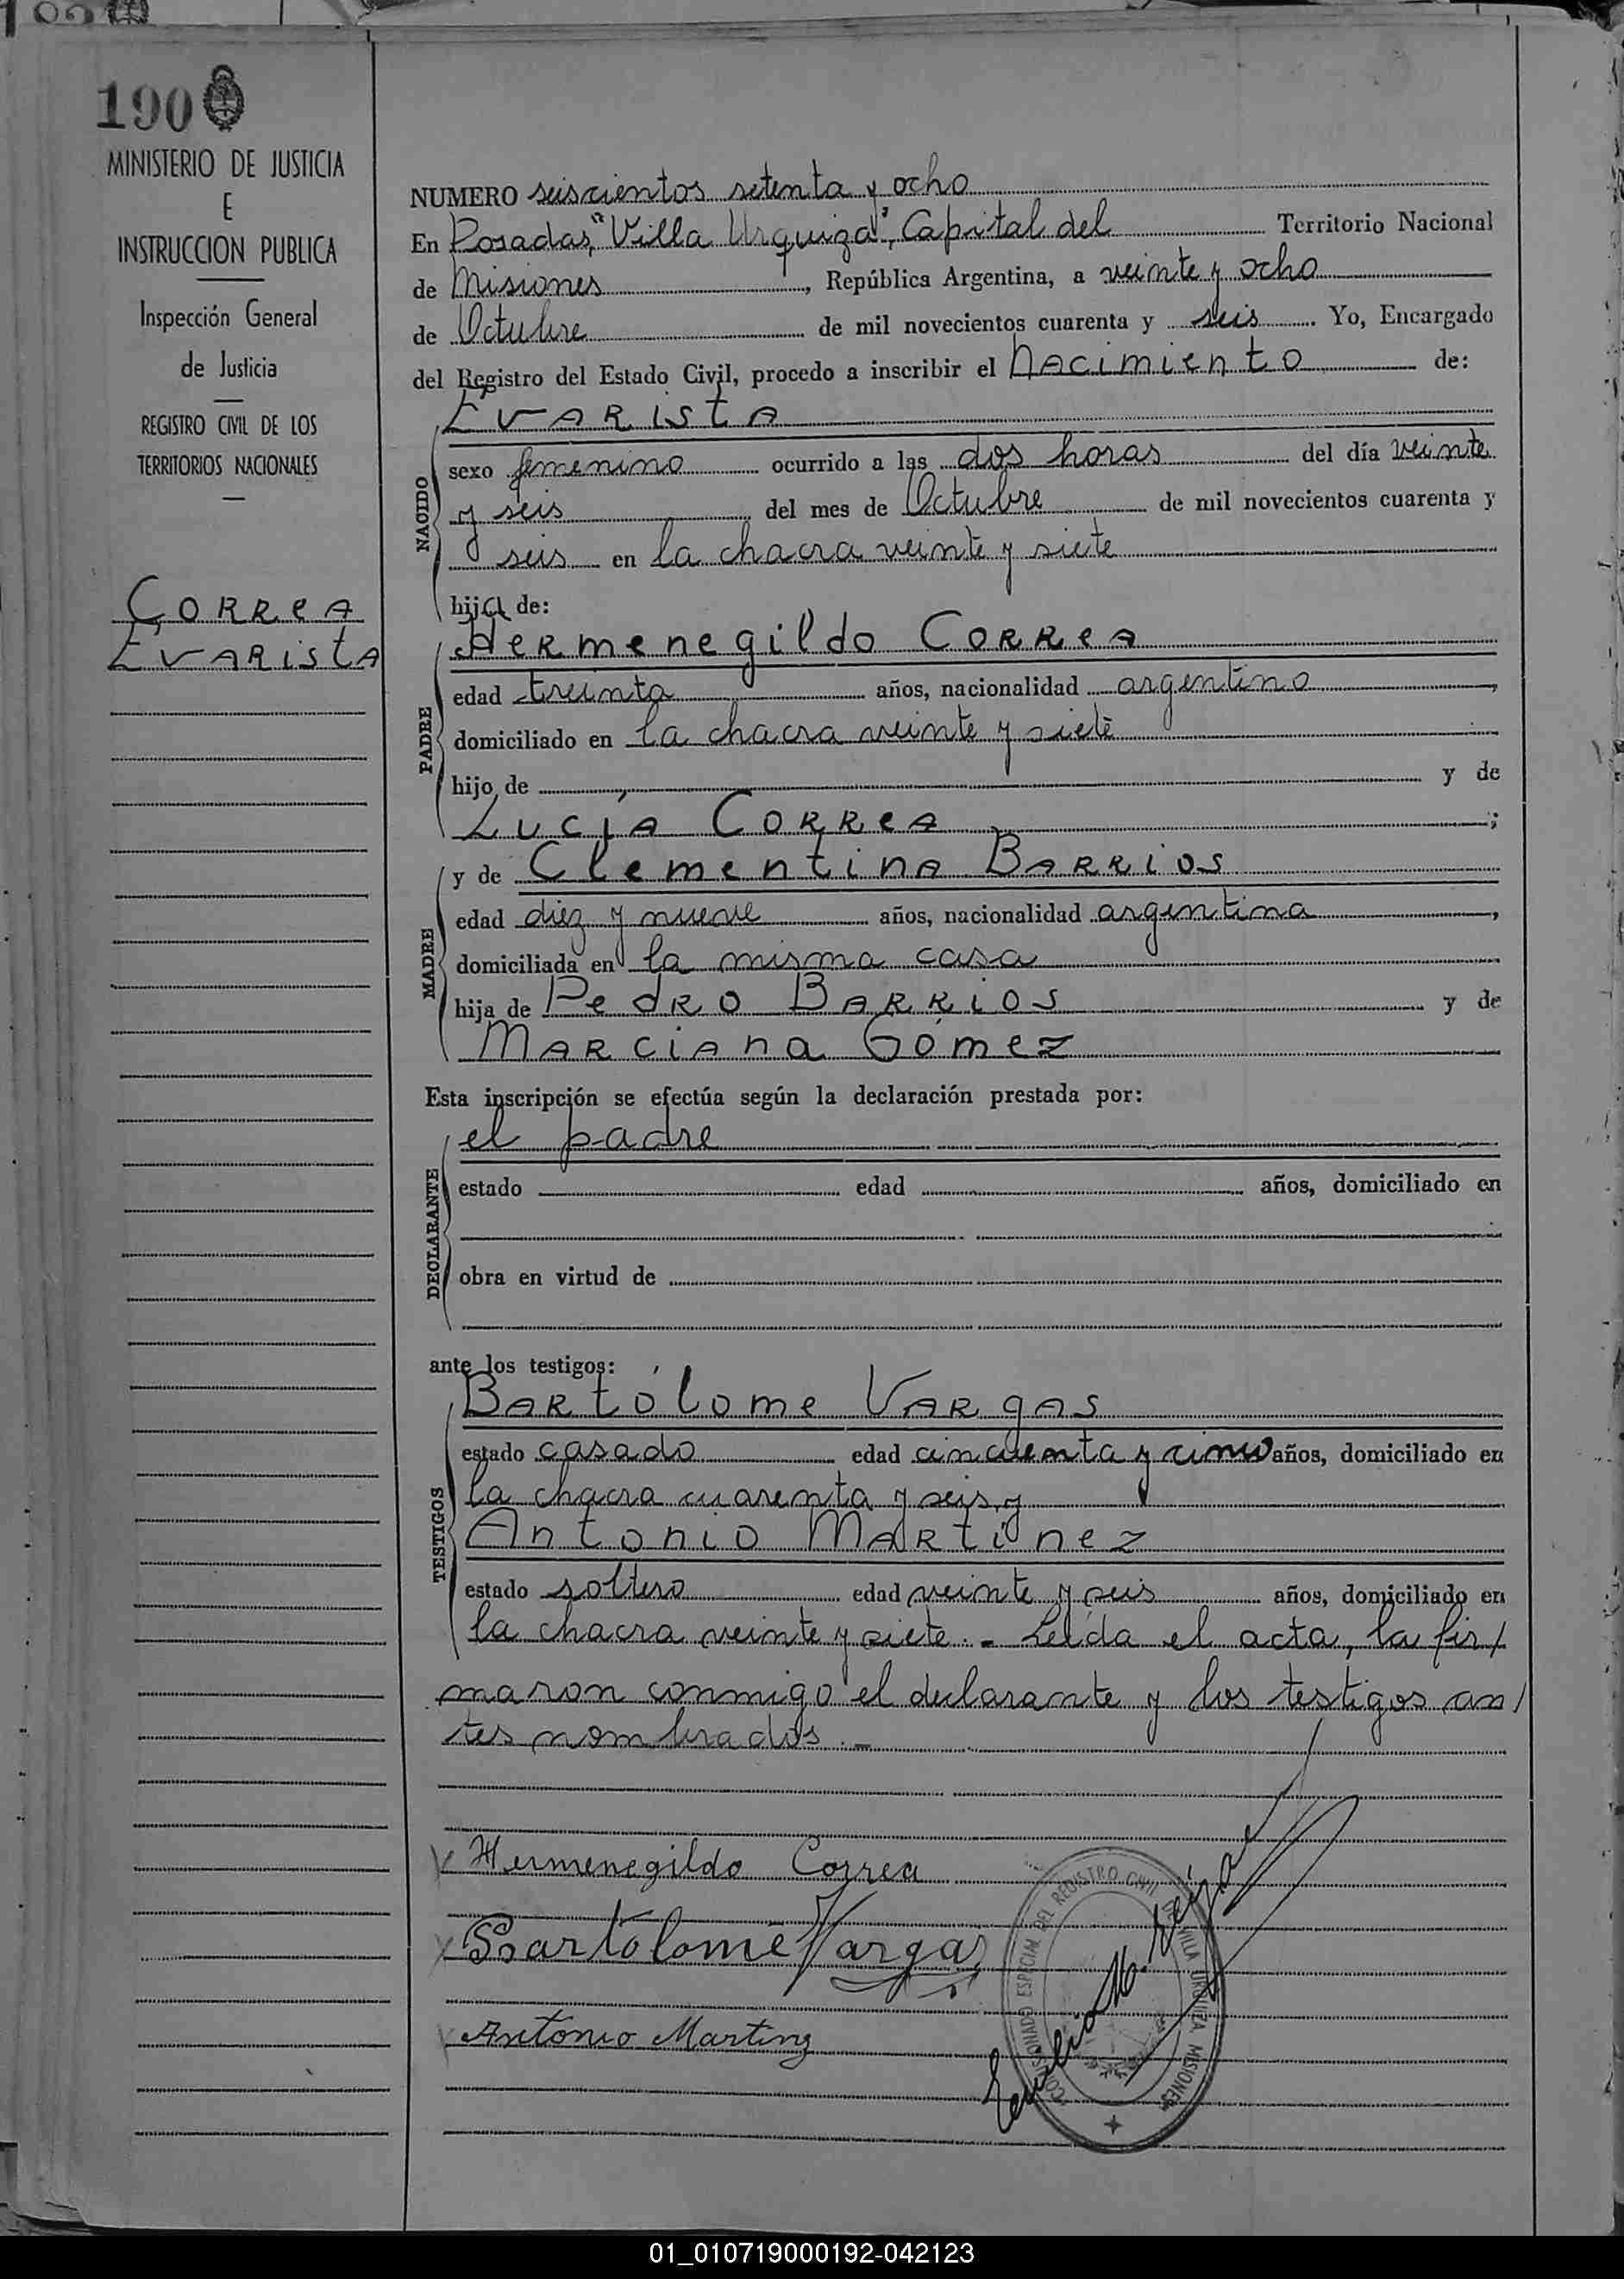 190
MINISTERIO DE JUSTICIA
E
INSTRUCCION PUBLICA
Inspección General
de Justicia
REGISTRO CIVIL DE LOS
TERRITORIOS NACIONALES
Correa
Evarista
NUMERO seiscientos setenta y ocho
En Posadas, "Villa Urquiza", Capital del Territorio Nacional
de Misiones, República Argentina, a veinte y ocho
de Octubre de mil novecientos cuarenta y seis. Yo, Encargado
del Registro del Estado Civil, procedo a inscribir el Nacimiento de:
Evarista
NACIDO
sexo femenino ocurrido a las dos horas del día veinte
y seis del mes de Octubre de mil novecientos cuarenta y
seis en la chacra veinte y siete
hija de:
Hermenegildo Correa
PADRE
edad treinta años, nacionalidad argentino,
domiciliado en la chacra veinte y siete
hijo de y de
Lucía Correa;
y de Clementina Barrios
MADRE
edad diez y nueve años, nacionalidad argentina,
domiciliada en la misma casa
hija de Pedro Barrios y de
Marciana Gómez
Esta inscripción se efectúa según la declaración prestada por:
el padre
DECLARANTE
estado edad años, domiciliado en
obra en virtud de
ante los testigos:
Bartólome Vargas
TESTIGOS
estado casado edad cincuenta y cinco años, domiciliado en
la chacra cuarenta y seis, y
Antonio Martínez
estado soltero edad veinte y seis años, domiciliado en
la chacra veinte y siete.- Leída el acta, la fir/
maron conmigo el declarante y los testigos an/
tes nombrados.-
Hermenegildo Correa
Bartolome Vargas
Antonio Martinz
COMISIONADO ESPECIAL DEL REGISTRO CIVIL DE VILLA URQUIZA MISIONES
01_010719000192-042123